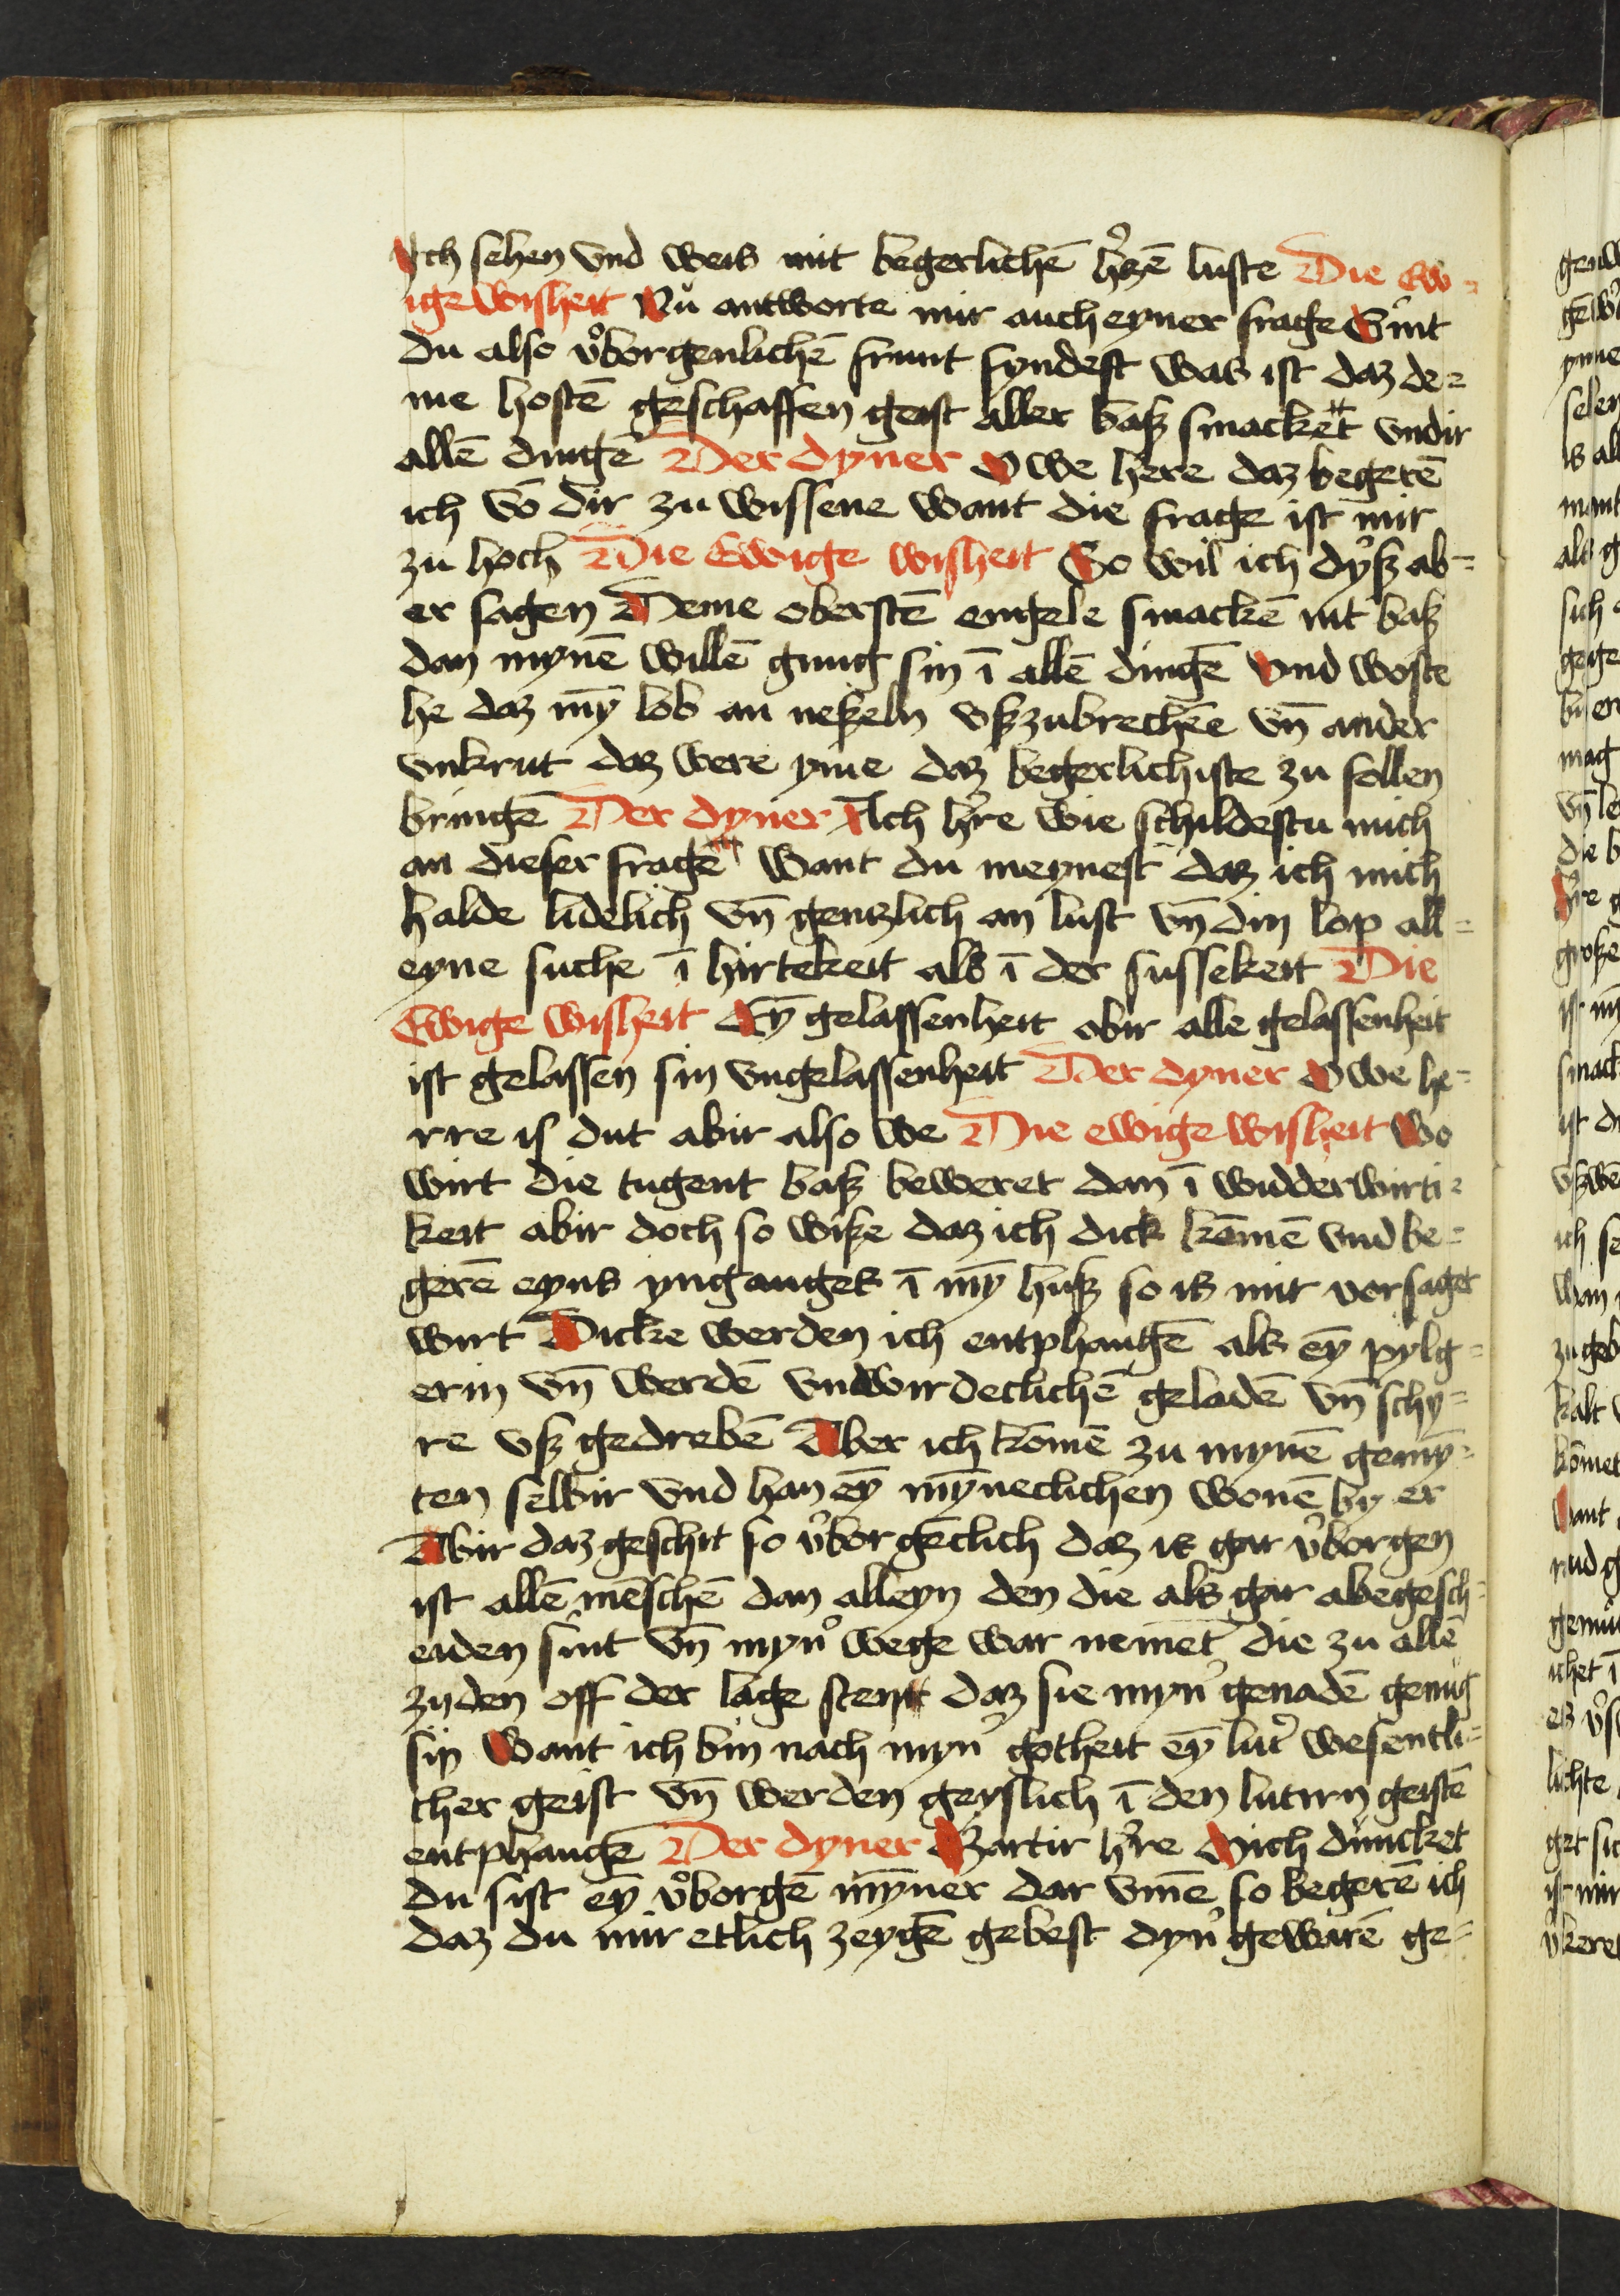 Ich sehen vnd weis mit begerlichē h̓czē luste Die Ew-
ige wisheit Nů antworte mir auch eyner frage Sint
du also v̓borgenlichē frunt syndest was ist daz de-
me hostē geschaffen geist aller basz smacket vndir
allē dingē Der dyner O we here daz begerē
ich vō dir zu wissene want die frage ist mir
zu hoch Die Ewige wisheit So wil ich dysz ab-
er sagen Deme oberstē engele smackē nit basz
dan mynē willē gnug sin ī allē dingē vnd woste
he daz mȳ lob an neszeln vszzubrechēe vn̄ ander
vnkrut daz were yme daz begerlichiste zu follen
bringē Der dyner Ach h̓re wie schildestu mich
an dieser frage want du meynest daz ich mich
halde lidelich vn̄ gentzlich an lust vn̄ din lop all-
eyne suche ī hirtekeit als ī der sussekeit Die
Ewige wisheit Eȳ gelassenheit obir alle gelassenheit
ist gelassen sin vngelassenheit Der dyner O we he-
rre is dut abir also we Die ewige wisheit Wo
wirt die tugent basz beweret dan ī widderwirti-
keit abir doch so wisze daz ich dick kōmē vnd be-
gerē eyns ynganges ī mȳ husz so is mir vorsaget
wirt Dicke werden ich entphangē als eȳ pylg-
erin vn̄ werdē vnwirdeclichē geladē vn̄ schy-
re vsz gedrebē Aber ich kōmē zu mynē gemȳ-
ten selbir vnd han eȳ mȳneclichen wonē by er
Abir daz geschit so v̓borgēclich daz is gar v̓borgen
ist allē mēschē dan alleyn den die als gar abegesch-
eiden sint vn̄ myn̓ wege war nemet die zu allē
zijden off der lage stent daz sie myn̓ genadē genug
sin Want ich bin nach myn̓ gotheit eȳ lut̓ wesentli-
cher geist vn̄ werden geyslich ī den lutirn geistē
entphangē Der dyner Zartir h̓re Mich duncket
du sist eȳ v̓borgē mȳner dar vmē so begerē ich
daz du mir etlich zeygē gebest dyn̓ gewarē ge-